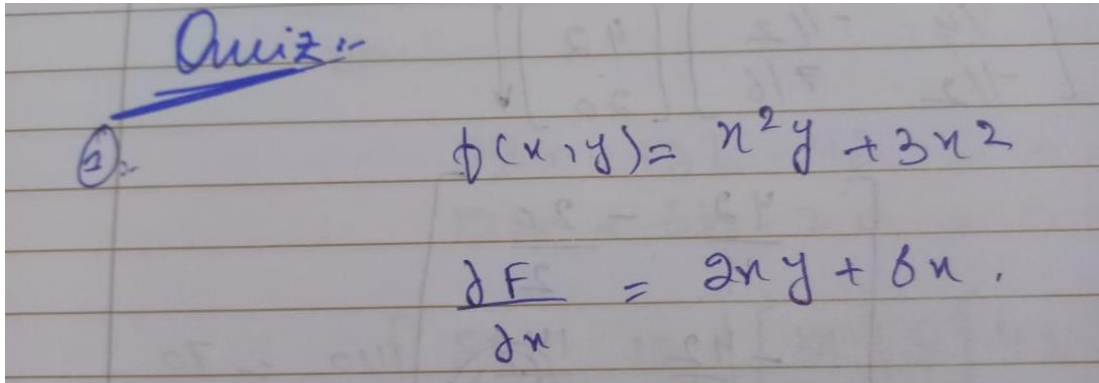 Quiz:-
①:-
f(x,y) = x²y + 3x²
∂F/∂x = 2xy + 6x.